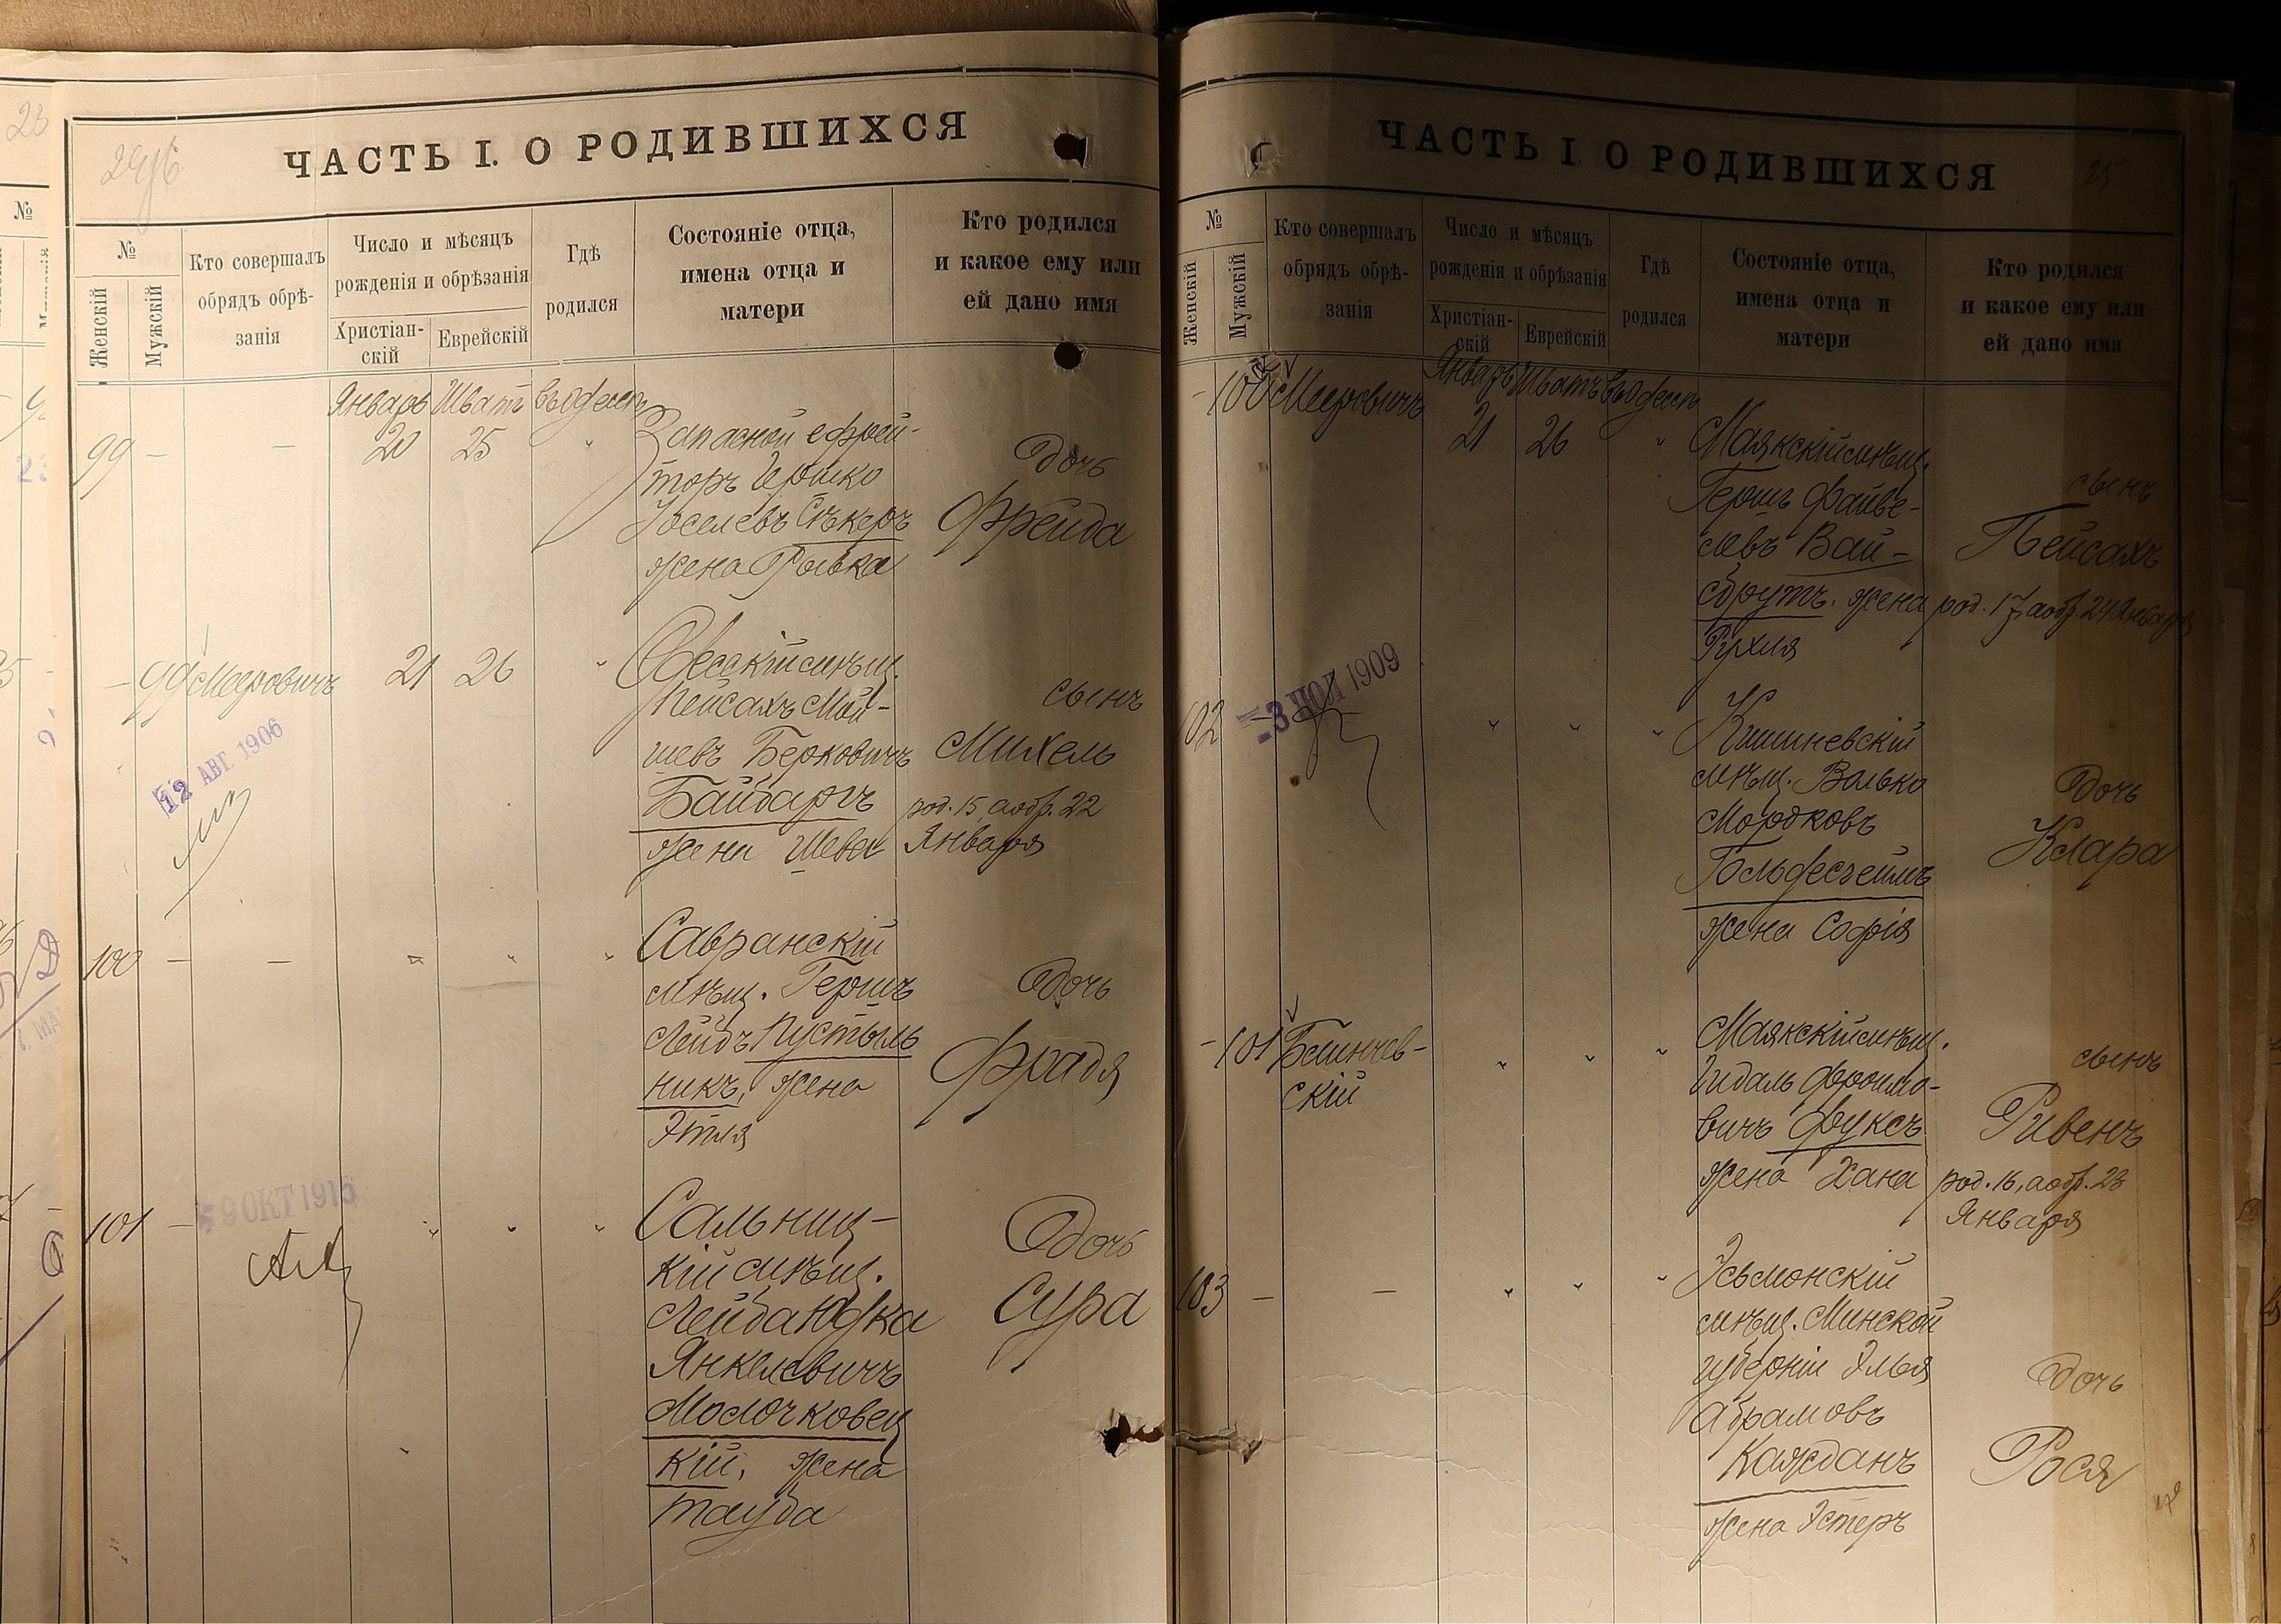 23
№
24/б.
ЧАСТЬ I. О РОДИВШИХСЯ
№
Женскій
Мужскій
Кто совершалъ
обрядъ обрѣ-
занія
Число и мѣсяцъ
рожденія и обрѣзанія
Христіан-
скій
Еврейскій
Гдѣ
родился
Состояніе отца,
имена отца и
матери
Кто родился
и какое ему или
ей дано имя
Январь Шватъ въ Одессѣ
99 — — 20 25 "
Запасной ефрей-
торъ Гершко
Іоселевъ Сѣкеръ
жена Рывка
дочь
Фрейда
— 99 Мееровичъ 21 26 "
12 АВГ. 1906
Одесскій мѣщ.
Пейсахъ Мой-
шевъ Берковичъ
Байдаргъ
жена Шева
сынъ
Михель
род. 15, а обр. 22
Января
100 — — " " "
Савранскій
мѣщ. Гершъ
Лейбъ Пустыль
никъ, жена
Этля
дочь
Фрадя
101 — " " "
9 ОКТ 1915
Сальниц-
кій мѣщ.
Лейба Юдка
Янкелевичъ
Молочковец
кій, жена
Тауба
дочь
Сура
ЧАСТЬ I. О РОДИВШИХСЯ
25
№
Женскій
Мужскій
Кто совершалъ
обрядъ обрѣ-
занія
Число и мѣсяцъ
рожденія и обрѣзанія
Христіан-
скій
Еврейскій
Гдѣ
родился
Состояніе отца,
имена отца и
матери
Кто родился
и какое ему или
ей дано имя
Январь Шватъ въ Одессѣ
— 100 Мееровичъ 21 26 "
Маякскій мѣщ.
Гершъ Файве-
левъ Вай-
сбрутъ. жена
Рухля
сынъ
Пейсахъ
род. 17, а обр. 24 Января
102 — " " "
3 ИЮЛ 1909
Кишиневскій
мѣщ. Волько
Мордковъ
Гольдесгеймъ
жена Софія
дочь
Клара
— 101 Блинчев-
скій
" " "
Маякскій мѣщ.
Гидаль Фроимо-
вичъ Фуксъ
жена Хана
сынъ
Ривенъ
род. 16, а обр. 23
Января
103 — — " " "
Эсьмонскій
мѣщ. Минской
губерніи Элья
Абрамовъ
Кажданъ
жена Эстеръ
дочь
Рося